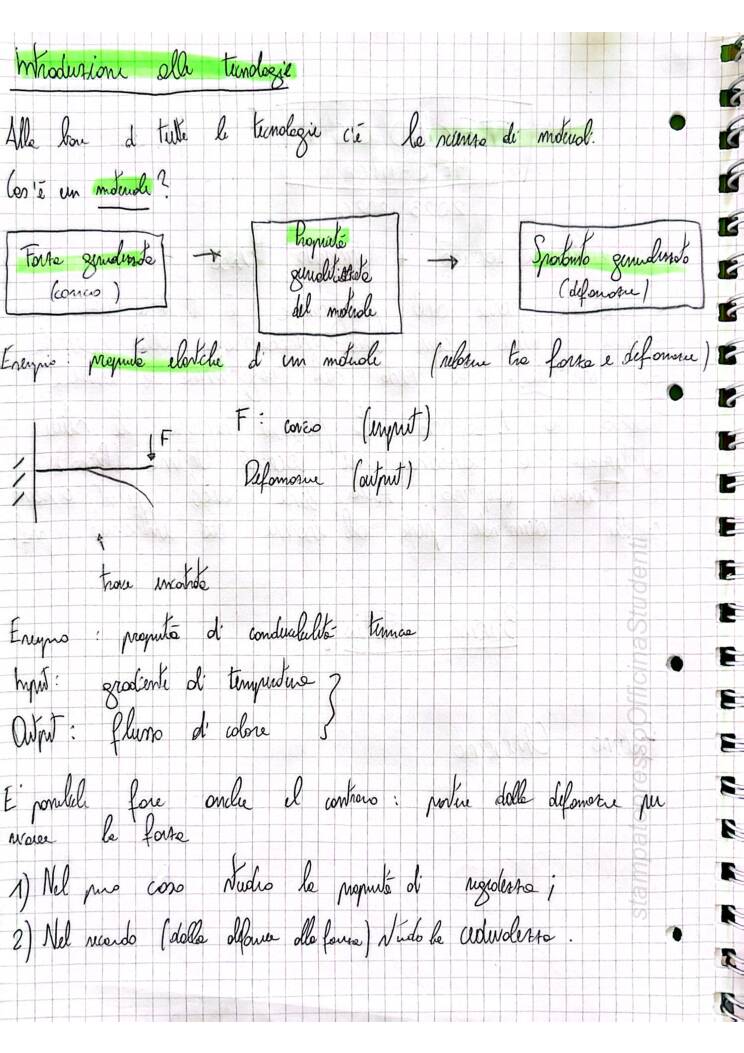 Introduzione alle tecnologie
Alla base di tutte le tecnologie c'è la scienza dei materiali.
Cos'è un materiale?
Forza generalizzata
(carico)
→
Proprietà
generalizzata
del materiale
→
Spostamento generalizzato
(deformazione)
Esempio: proprietà elastiche di un materiale (relazione tra forza e deformazione)
F
F: carico (input)
Deformazione (output)
trave incastrata
Esempio: proprietà di conducibilità termica
Input: gradiente di temperatura
Output: flusso di calore
E' possibile fare anche il contrario: partire dalla deformazione per
la forza
1) Nel primo caso studio la proprietà di rigidezza;
2) Nel secondo (dalla deformazione alla forza) studio la cedevolezza.
stampato presso OfficinaStudenti